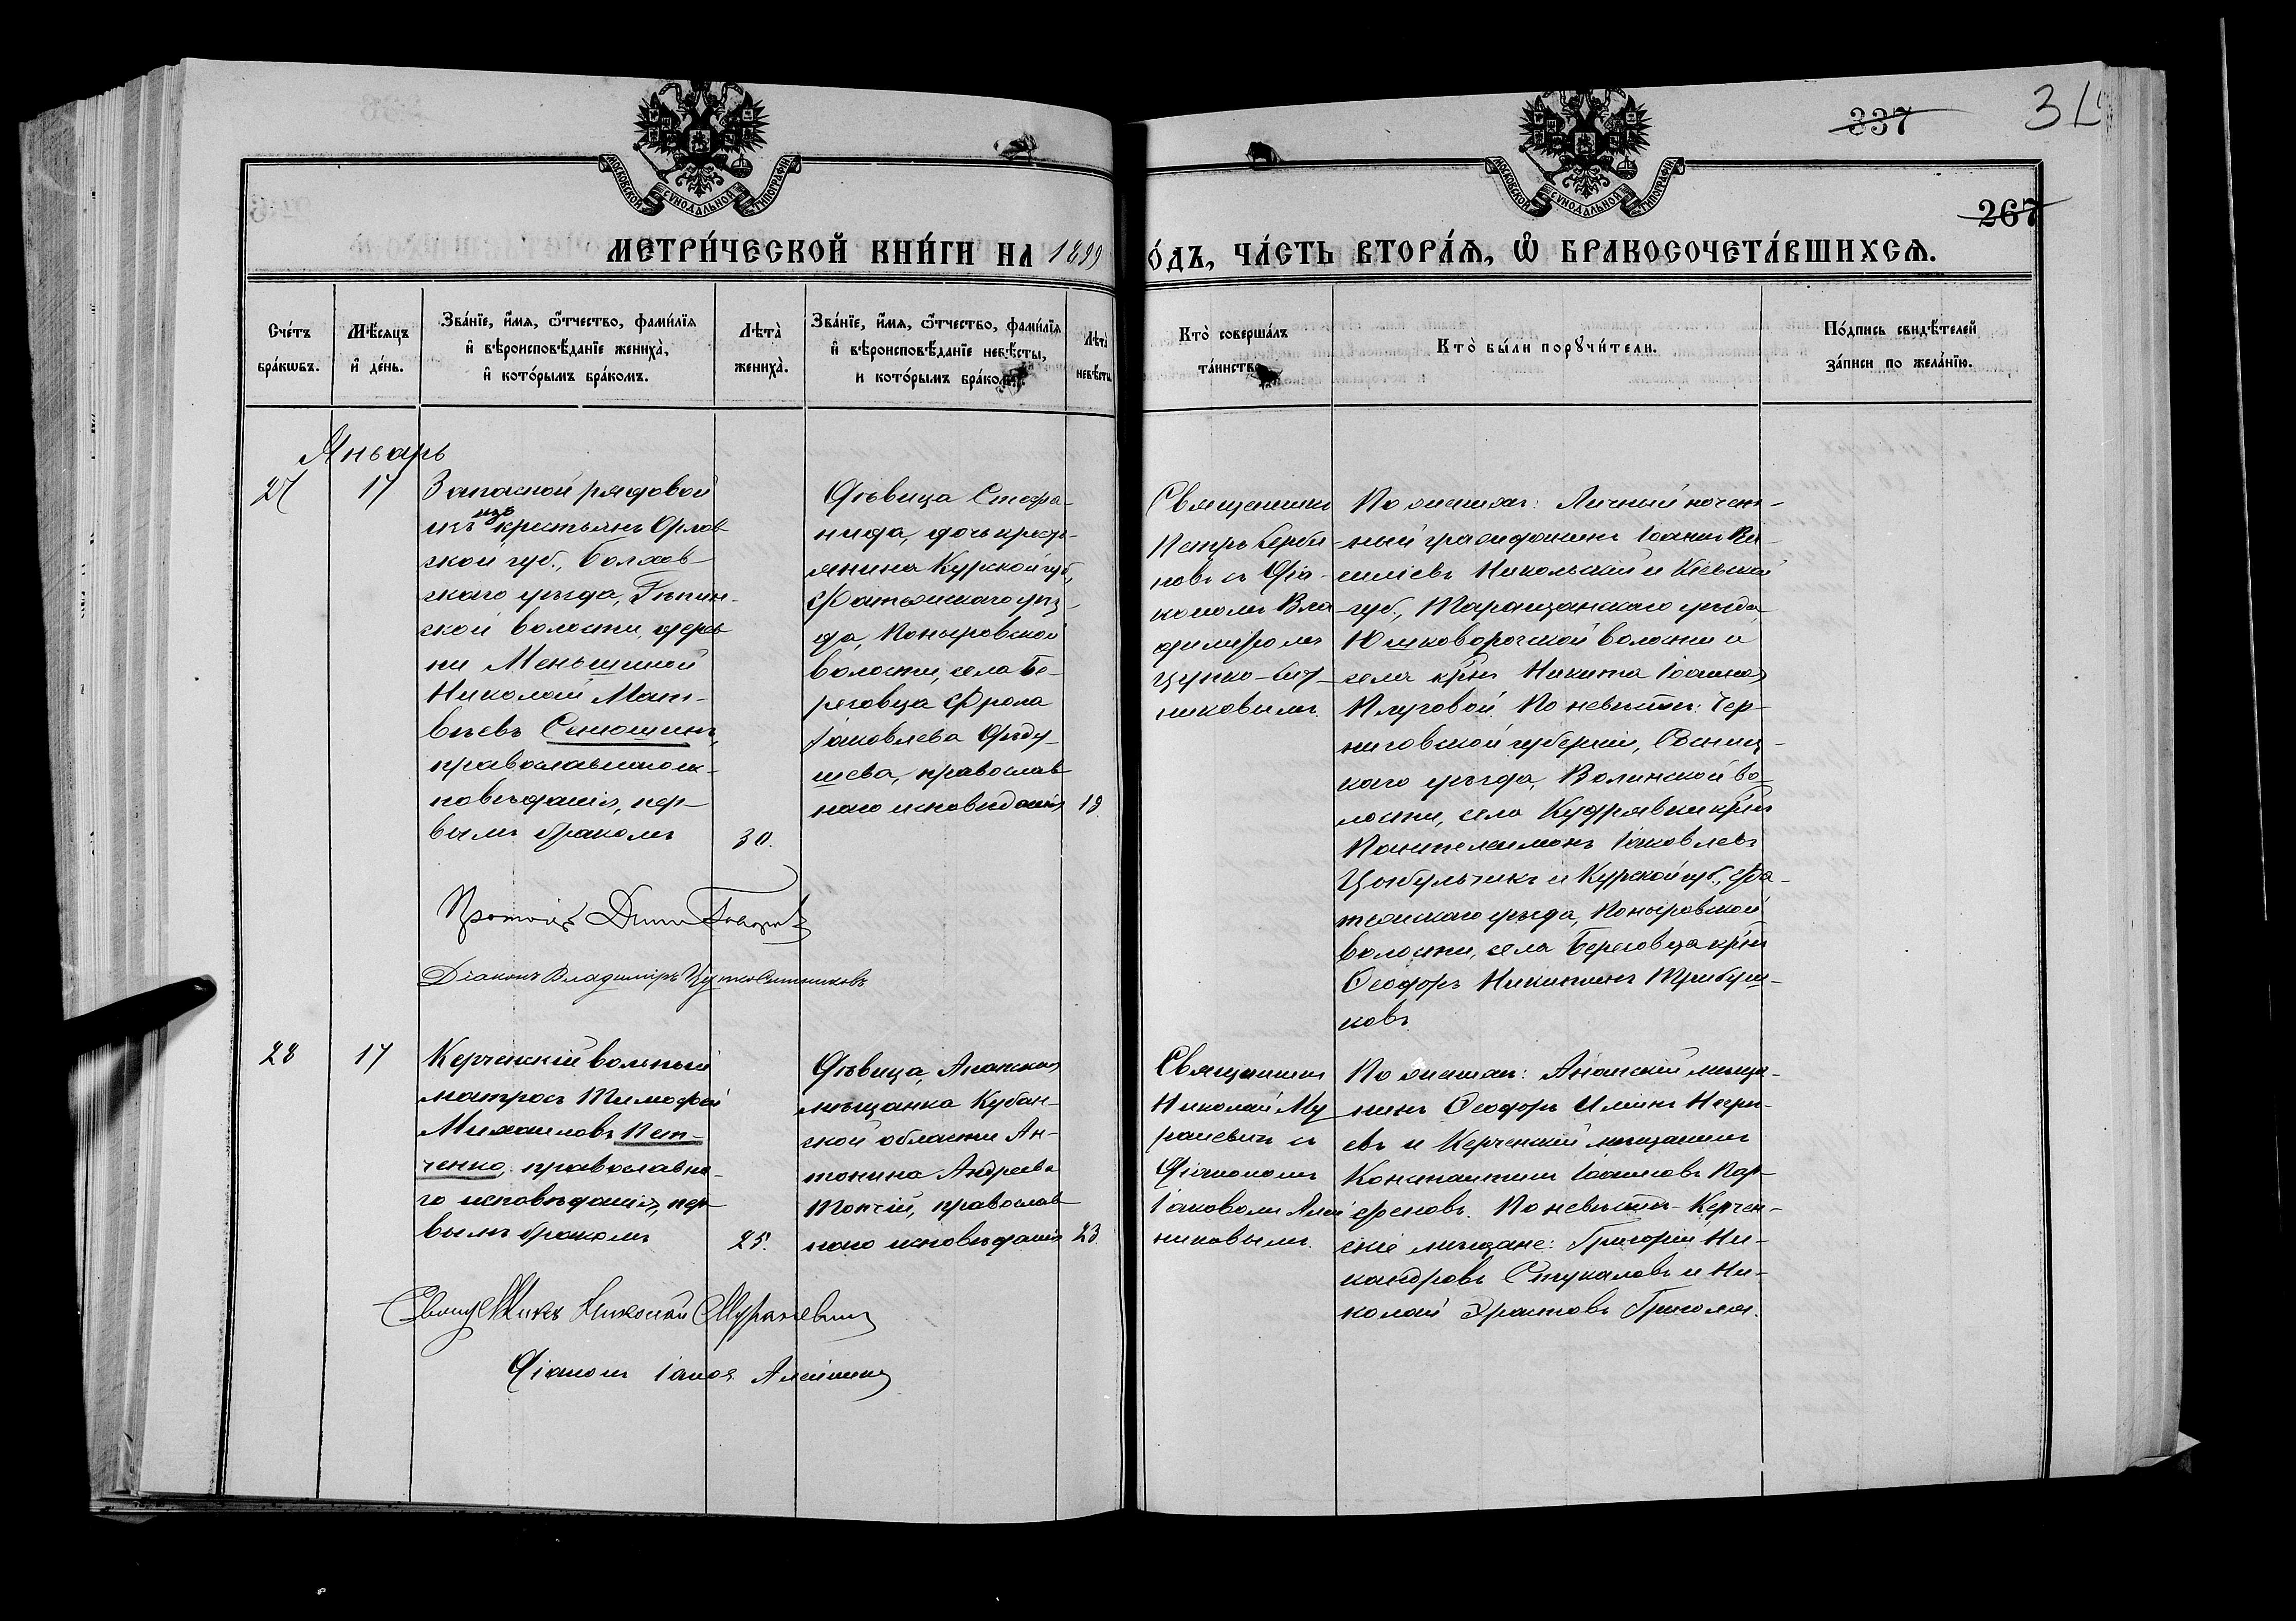 337
267
МОСКОВСКОЙ СѴНОДАЛЬНОЙ ТИПОГРАФІИ
МОСКОВСКОЙ СѴНОДАЛЬНОЙ ТИПОГРАФІИ
МЕТРИ́ЧЕСКОЙ КНИ́ГИ НА 1899
О́ДЪ, ЧА́СТЬ ВТОРА́Ѧ, Ѽ БРАКОСОЧЕТА́ВШИХСѦ.
Сче́тъ бра́кѡвъ.
Мѣ́сяцъ и҆ де́нь.
Зва́нїе, и҆́мя, ѻ҆́тчество, фами́лїя
и҆ вѣроисповѣ́данїе жениха̀,
и҆ кото́рымъ бра́комъ.
Лѣта̀ жениха̀.
Зва́нїе, и҆́мя, ѻ҆́тчество, фами́лїя
и҆ вѣроисповѣ́данїе невѣ́сты,
и кото́рымъ бра́комъ.
Лѣта̀ невѣ́сты
Кто̀ соверша́лъ
та́инство
Кто̀ бы́ли порꙋчи́тели.
По́дпись свидѣ́телей
за́писи по жела́нїю.
Январь
27
17
Запасной рядовой
изъ крестьянъ Орлов
ской губ., Болхов-
скаго уѣзда,
ской волости, дерев
ни Меньшиной
Николай Мат-
вѣевъ Сеношинъ,
православнаго ис-
повѣданія, пер-
вымъ бракомъ
30.
Дѣвица Стефа-
нида, дочь крест-
янина Курской губ.,
Фатежскаго уѣз-
да, Поныровской
волости, села Бе-
реговца Фрола
Іаковлева Дѣду-
шева, православ
наго исповѣданія
19
Священникъ
Петръ Серби-
новъ съ Діа-
кономъ Вла-
димиромъ
Цупко-Сит-
никовымъ.
По женихѣ: Личный почет-
ный гражданинъ Іоаннъ Ва-
силіевъ Никольскій и Кіевской
губ., Таращанскаго уѣзда,
волости и
села кр̃нъ Никита Іоанновъ
Плуговой. По невѣстѣ: Чер-
ниговской губерніи, Сосниц-
каго уѣзда, Волинской во-
лости, села Кудрявки кр̃нъ
Пантелеимонъ Іаковлевъ
Цыбульникъ и Курской губ., Фа-
тежскаго уѣзда, Поныровской
волости, села Береговца кр̃нъ
Ѳеодоръ Никитинъ Трибуш-
ковъ.
Діаконъ Владимиръ Цупко Ситниковъ
28
17
Керченскій вольный
матросъ Тимофей
Михаиловъ Пет-
ченко, православна-
го исповѣданія, пер
вымъ бракомъ
25.
Дѣвица, Анапская
мѣщанка Кубан-
ской области Ан-
тонина Андреева
Топчій, православ
наго исповѣданія
23.
Священникъ
Николай Му
раневичъ съ
Діакономъ
Іаковомъ Алей
никовымъ.
По женихѣ: Анапскій мѣща-
нинъ Ѳеодоръ Илiинъ
евъ и Керченскій мѣщанинъ
Константинъ Іоанновъ Пар-
феновъ. По невѣстѣ: Керчен-
скіе мѣщане: Григорій Ни-
кандровъ Стукаловъ и Ни-
колай Эрастовъ
Священникъ Николай Мураневичъ
Діаконъ Іаковъ Алейниковъ